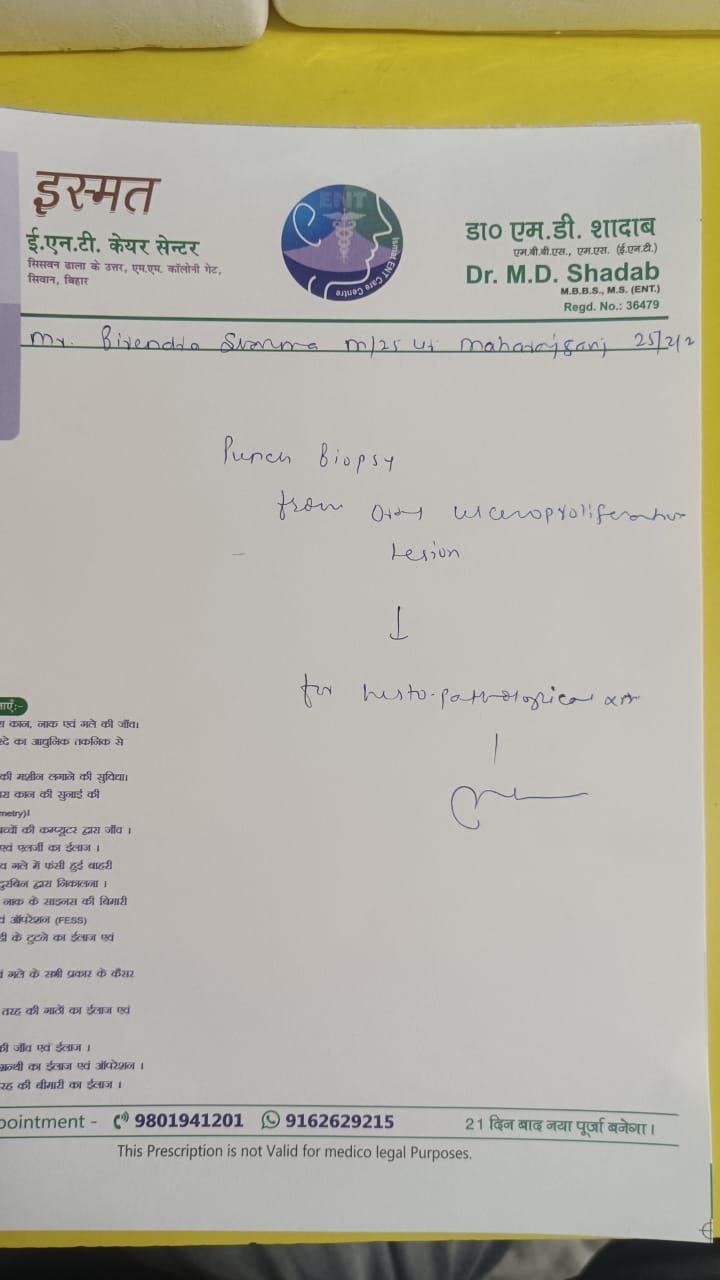 इस्मत
ई.एन.टी. केयर सेन्टर
सिसवन ढाला के उत्तर, एम.एम. कॉलोनी गेट,
सिवान, बिहार
ENT
Ismat ENT Care Centre
डा० एम.डी. शादाब
एम.बी.बी.एस., एम.एस. (ई.एन.टी.)
Dr. M.D. Shadab
M.B.B.S., M.S. (ENT.)
Regd. No.: 36479
Mr. Birendra Sharma m/25 Maharajganj 25/2/2
Punch Biopsy
from Oral ulceroproliferative
Lesion
for histo-pathological
ाएं:-
कान, नाक एवं गले की जाँच।
दे का आधुनिक तकनिक से
की मशीन लगाने की सुविधा।
रा कान की सुनाई की
metry)।
च्चों की कम्प्यूटर द्वारा जाँच ।
एवं एलर्जी का ईलाज ।
व गले में फंसी हुई बाहरी
दुरबिन द्वारा निकालना ।
नाक के साइनस की बिमारी
ऑपरेशन (FESS)
डी के टुटने का ईलाज एवं
गले के सभी प्रकार के कैंसर
तरह की गाठों का ईलाज एवं
की जाँच एवं ईलाज ।
ग्रन्थी का ईलाज एवं ऑपरेशन ।
रह की बीमारी का ईलाज ।
pointment - 9801941201 9162629215
21 दिन बाद नया पूर्जा बनेगा।
This Prescription is not Valid for medico legal Purposes.